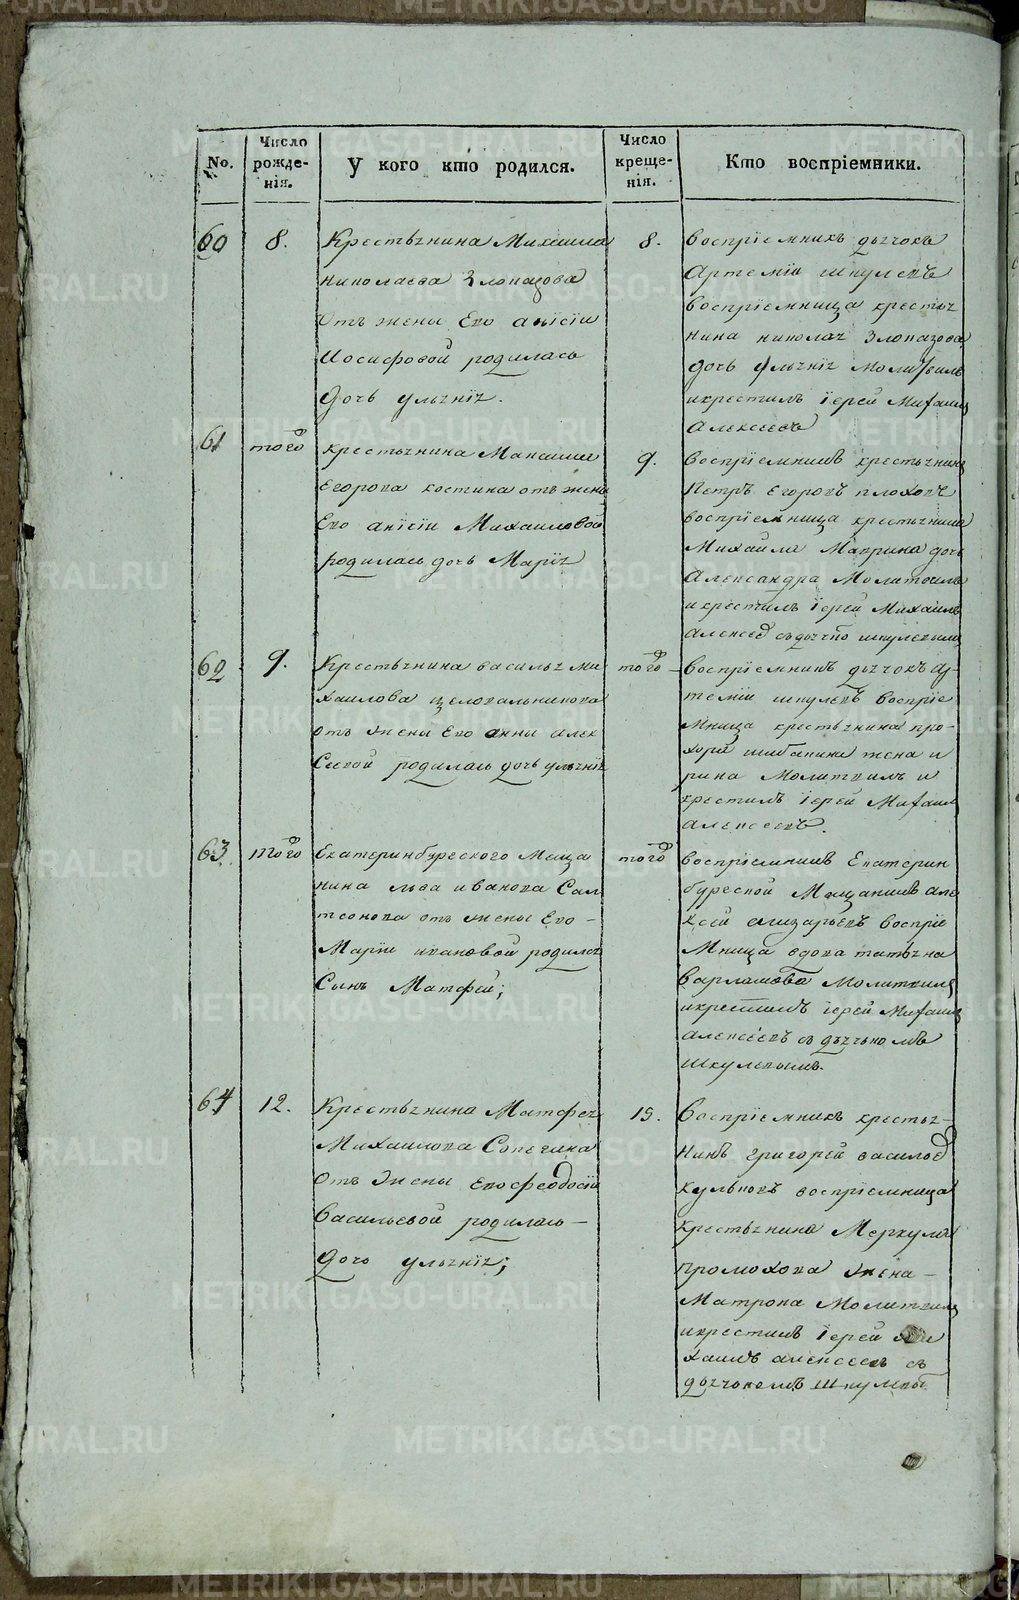 No.
Число рожде-нія.
У кого кто родился.
Число креще-нія.
Кто воспріемники.
60
8.
Крестьянина Михаила
Николаева Злоказова
отъ жены Его анісіи
Иосифовой родилась
дочь ульянія.
8.
воспріемникъ дьячокъ
Артеміи шкулевъ
воспріемница крестья
нина николая Злоказова
дочь ульянія молитвилъ
икрестилъ іерей Михаилъ
Алексеевъ
61
того
крестьянина Максима
Егорова костина отъ жены
Его анісіи Михаиловой
родилась дочь Марія
9.
воспріемникъ крестьянинъ
Петръ Егоровъ плоховъ
воспріемница крестьянина
Михайла Маврина дочь
Александра Молитвилъ
икрестилъ іерей Михаилъ
алексеевъ
62
9.
Крестьянина василья ми
хаилова целовальникова
отъ жены Его анны алек
Сеевой родилась дочь ульянія
того
воспріемникъ дьячокъ ар-
теміи шкулевъ воспріе
мница крестьянина про-
хора шабалина жена и
рина Молитвилъ и
крестилъ іерей Михаилъ
алексеевъ.
63.
того
Екатеринбургского Меща
нина льва иванова Сал
отъ жены Его -
Маріи ивановой родился
Сынъ Матфей;
того
воспріемникъ Екатерин
бургской Мещанинъ але
ксей елизарьевъ воспріе
мница вдова татьяна
варламова Молитвилъ
икрестилъ іерей Михаилъ
алексеевъ съ дьячкомъ
шкулевымъ.
64
12.
Крестьянина Матфея
Михаилова Сопегина
отъ жены его феодосіи
Васильевой родилась -
дочь ульянія;
15.
Воспріемникъ крестья-
нинъ григорей васильевъ
воспріемница
крестьянина Меркула
промохова жена -
Матрона Молитвилъ
икрестилъ іерей Ми
хаилъ алексеевъ съ
дьячкомъ шкулевы
METRIKI.GASO-URAL.RU